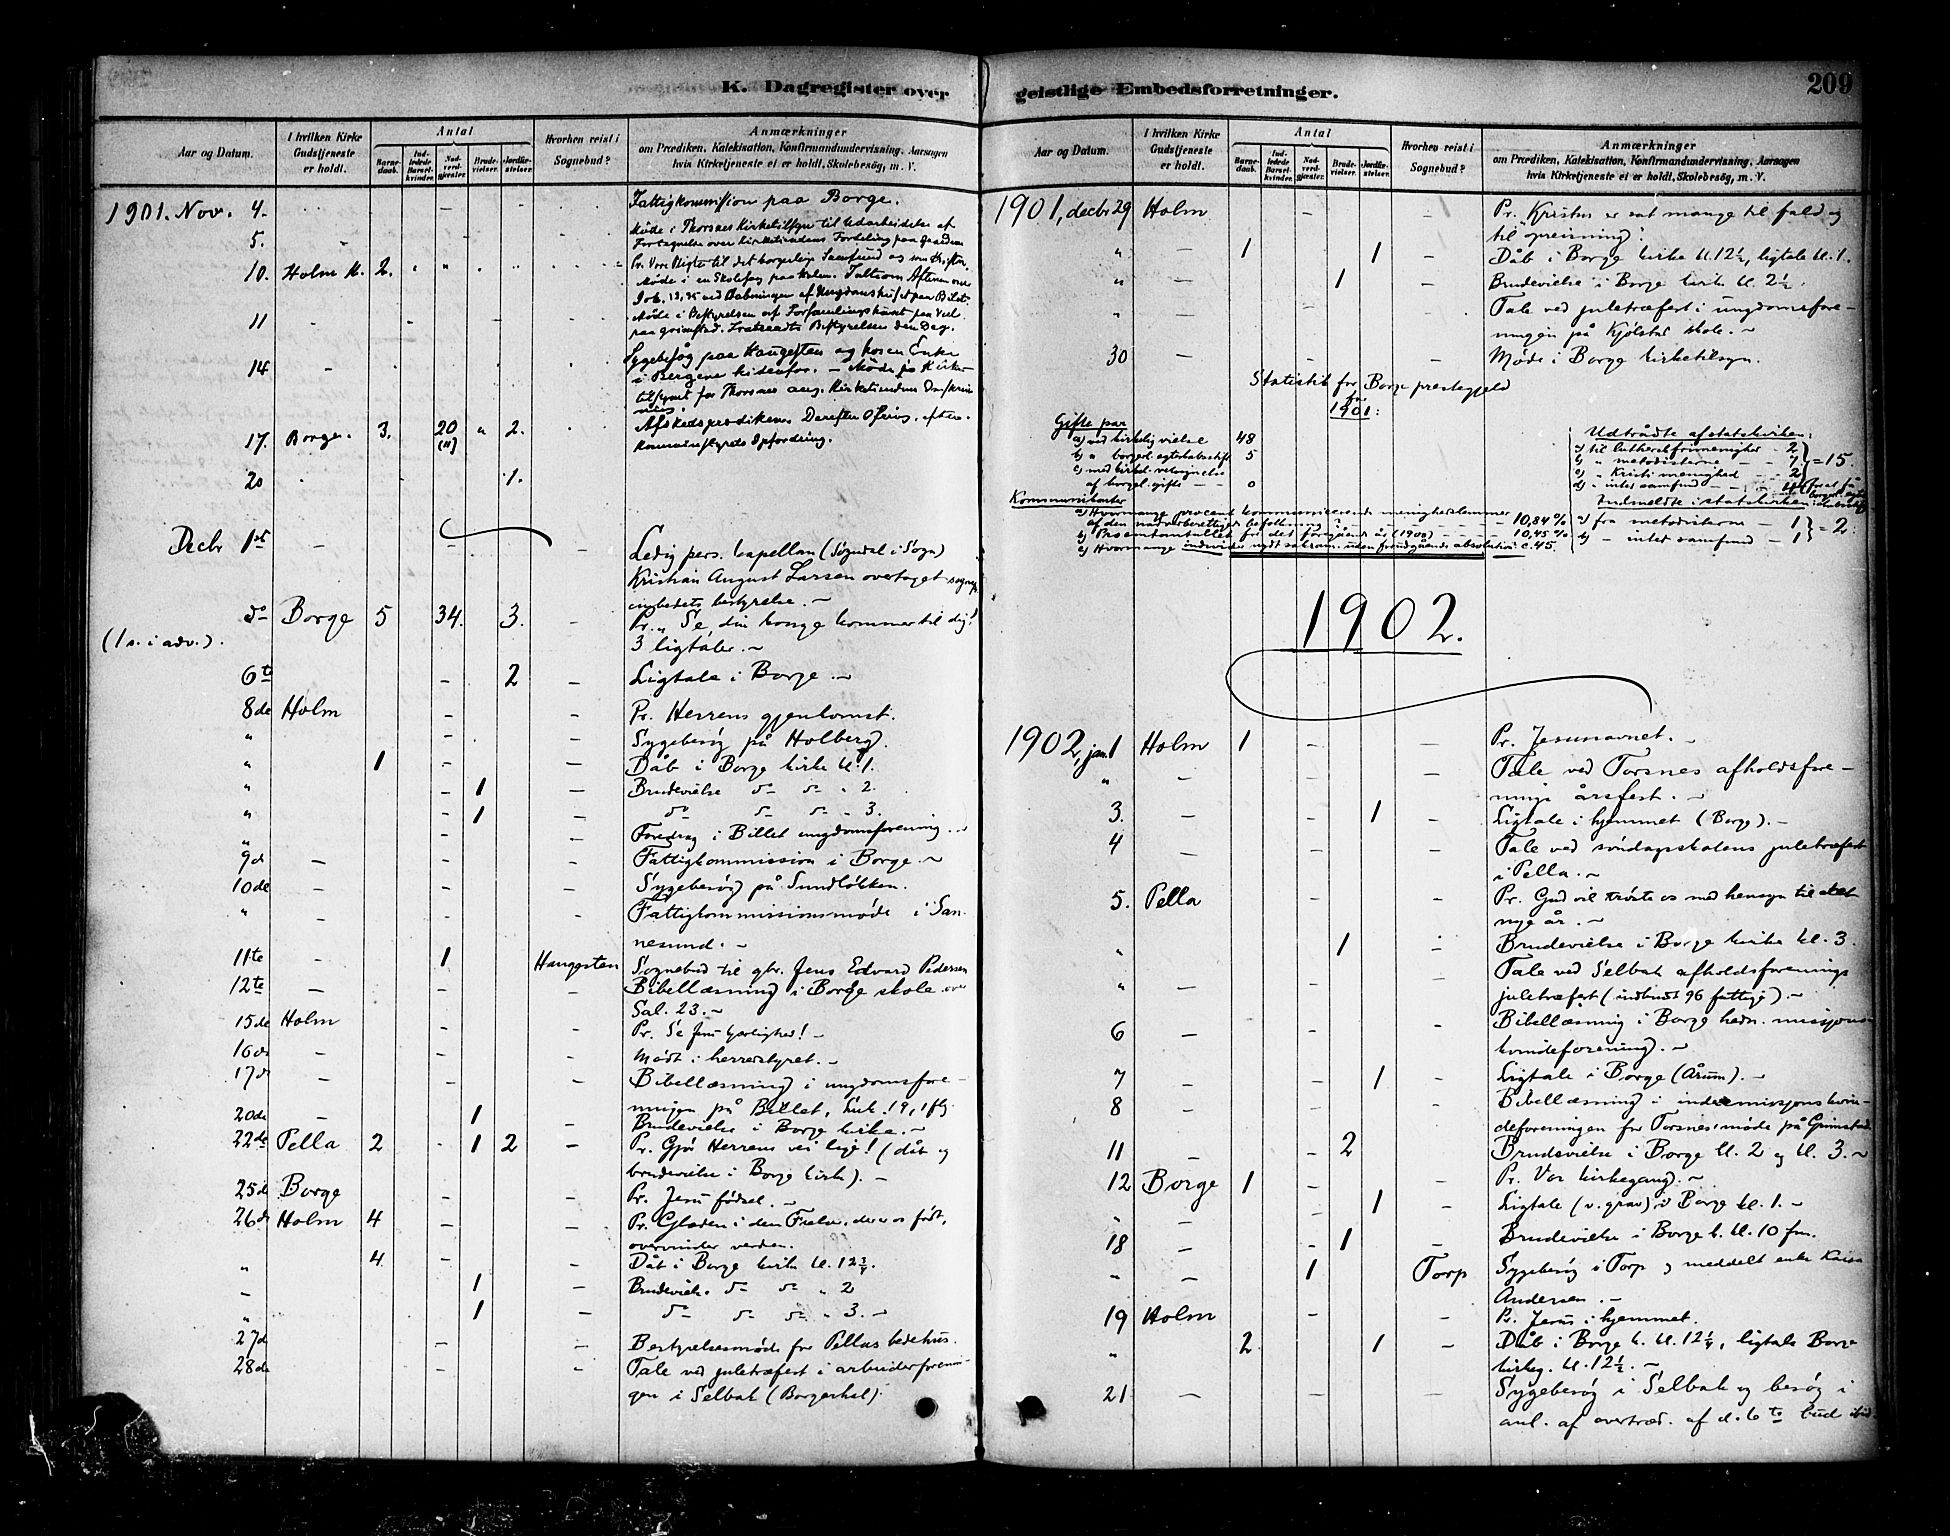 K. Dagregister over
Aar og Datum.
I hvilken Kirke Gudstjeneste er holdt.
Antal
Barnedaab.
Indledede Barselkvinder.
Nadverdgjæster.
Brudevielser.
Jordfæstelser.
Hvorhen reist i Sognebud?
Anmærkninger
om Prædiken, Katekisation, Konfirmandundervisning, Aarsagen
hvis Kirketjeneste ei er holdt, Skolebesøg, m. V.
1901. Nov. 4. Fattigkommission paa Borge.
5. Møde i Thorsnes Kirketilsyn til Udarbeidelse af
Fortegnelse over Kirketiendens Fordeling paa
10. Holm K. 2. Pr. Vore Pligter til det borgerlige Samfund og som Kristen.
Møde i en Skolesag paa Holm. Tale om Aftenen over
11 Møde i Bestyrelsen af
Bestyrelsen den Dag.
14 Sygebesøg paa Haugesten og hos en Enke
i Bergene Møde i Kirke-
tilsynet for Thorsnes ang. Kirketienden
17. Borge. 3. 20 (11) " 2. Afskedsprædiken. Derefter
Kommunestyrets Opfordring.
20 1.
Decbr 1st Ledig pers. kapellan (Sogndal i Sogn)
Kristian August Larsen overtaget sogne-
embedets bestyrelse.
do Borge 5 34. 3. Pr. „Se din konge kommer til dig!
(1 s. i adv.). 3 ligtaler.
6te 2 Ligtale i Borge
8de Holm Pr. Herrens gjenkomst.
" Sygebesøg på Holberg.
" 1 Dåb i Borge kirke kl. 1.
" 1 Brudevielse do do " 2.
" 1 do do do " 3.
" Foredrag i Billet ungdomsforening.
9de Fattigkommission i Borge
10de Sygebesøg på Sundløkken.
" Fattigkommissionsmøde i San-
nesund.
11te 1 Haugesten Sognebud til gbr. Jens Edvard Pedersen
12te Bibellæsning i Borge skole over
Sal. 23.
15de Holm Pr. Se Jesu kjærlighed!
16de Mødt i herredstyret.
17de Bibellæsning i ungdomsfore-
ningen på Billet, Luk. 19, 1 flg.
20de 1 Brudevielse i Borge kirke.
22de Pella 2 1 2 Pr. Gjør Herrens vei lige! (dåb og
brudevielse i Borge kirke).
25de Borge Pr. Jesu fødsel.
26de Holm 4 Pr. Glæden i den Frelser, der er os født,
overvinder verden.
" 4 Dåb i Borge kirke kl. 12 3/4.
" 1 Brudevielse do do " 2
" 1 do do do " 3.
27de Bestyrelsesmøde for Pellas bedehus.
28de Tale ved juletræfest i arbeiderforenin-
gen i Selbak (Borgerhel)
geistlige Embedsforretninger.
209
Aar og Datum.
I hvilken Kirke Gudstjeneste er holdt.
Antal
Barnedaab.
Indledede Barselkvinder.
Nadverdgjæster.
Brudevielser.
Jordfæstelser.
Hvorhen reist i Sognebud?
Anmærkninger
om Prædiken, Katekisation, Konfirmandundervisning, Aarsagen
hvis Kirketjeneste ei er holdt, Skolebesøg, m. V.
1901, decbr 29 Holm Pr. Kristus er sat mange til fald og
til opreisning!
" 1 1 Dåb i Borge kirke kl. 12 1/2, ligtale kl. 1.
" 1 Brudevielse i Borge kirke kl. 2 1/2.
" Tale ved juletræfest i ungdomsfore-
ningen på Kjølstad skole.
30 Møde i Borge kirketilsyn.
Statistik for Borge prestegjeld
for
1901:
Gifte par
a) ved kirkelig vielse 48
b) " borgerl. egteskabsstift. 5
c) med kirkel. velsignelse
af borgerl. gifte 0
Udtrådte af statskirken:
a) til luthersk frimenighed - 2
b) " metodisterne - 7
c) " Kristi menighed - 2
d) " intet samfund - 4
= 15.
Indmeldte i statskirken
a) fra metodisterne - 1
b) " intet samfund - 1
= 2.
Kommunikanter
a) Hvormange procent kommunicerende menighedslemmer
af den nadverberettigede befolkning? 10,84 %
b) Procentantallet for det foregående år (1900) 10,45 %
c) Hvormange individer nydt sakram. uden foregående absolution: c. 45.
1902.
1902, jan. 1 Holm 1 Pr. Jesusnavnet.
" Tale ved Torsnes afholdsfore-
nings årsfest.
3. 1 Ligtale i hjemmet (Borge).
4 Tale ved søndagsskolens juletræfest
i Pella.
5. Pella Pr. Gud vil trøste os med hensyn til det
nye år.
" 1 Brudevielse i Borge kirke kl. 3.
" Tale ved Selbak afholdsforenings
juletræfest (indbudt 96 fattige).
6 Bibellæsning i Borge hedn. missions-
kvindeforening.
7 1 Ligtale i Borge (Årum).
8 Bibellæsning i indremissionskvin-
deforeningen for Torsnes; møde på Grimstad
11 2 Brudevielse i Borge kl. 2 og kl. 3.
12 Borge 1 Pr. Vor kirkegang.
" 1 Ligtale (v. grav) i Borge kl. 1.
18 1 Brudevielse i Borge k. kl. 10 fm.
" 1 Torp Sygebesøg i Torp og meddelt enke Kaisa
Andersen.
19 Holm Pr. Jesus i hjemmet.
" 2 1 Dåb i Borge k. kl. 12 1/4, ligtale Borge
kirkeg. kl. 12 1/2.
21 Sygebesøg i Selbak og besøg i
anl. af overtræd. af d. 6te bud